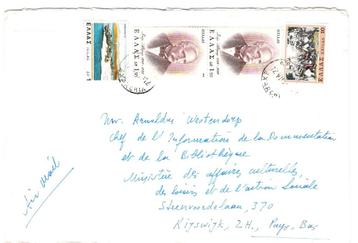 ΕΛΛΑΣ
ΕΛΛΑΣ
ΕΛΛΑΣ
ΕΛΛΑΣ
Arnaldus Westendorp
Chef de l'Information de la Documentation
et de la Bibliothèque
Ministère des affaires culturelles,
des loisirs et de l'action sociale
Steenvoordelaan, 370
Rijswijk, Z.H., Pays-Bas
Air Mail